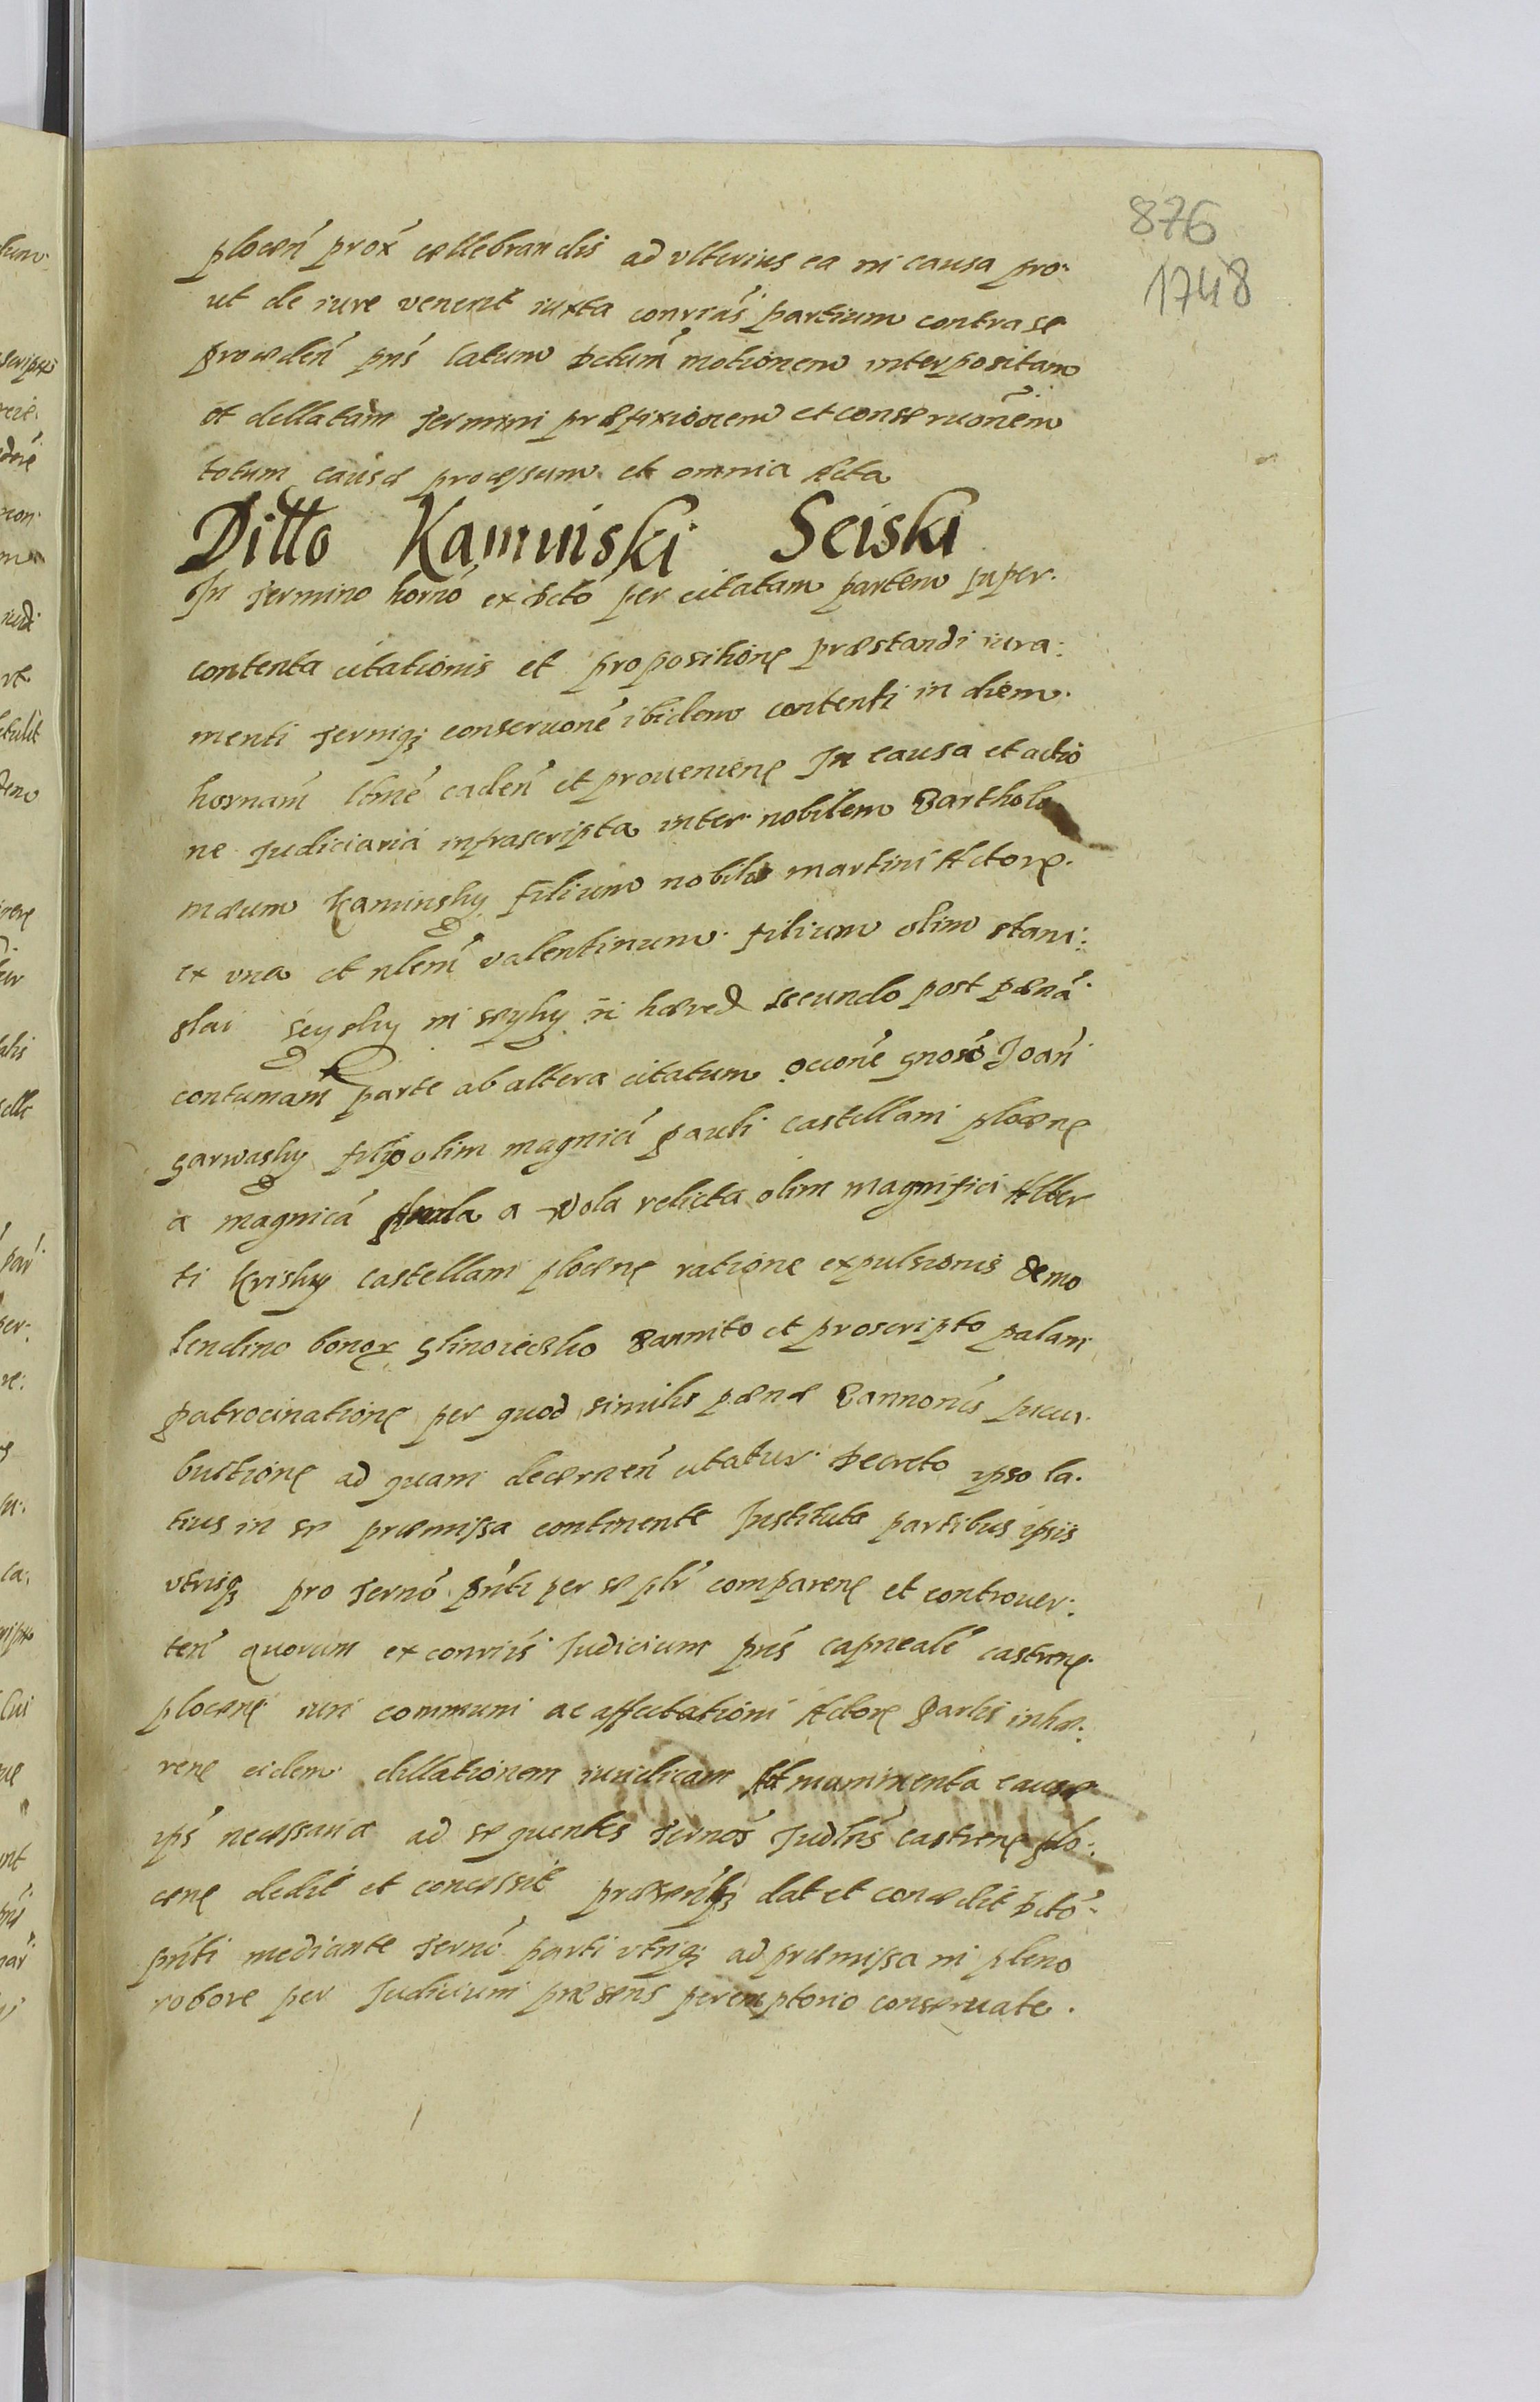 876
1748
plocen̄ prox̄ cellebrandis ad vlterius ea in causa pro-
ut de iure venerit iuxta contrias partium contra se
proceden̄ pns̄ latum dctum motionem interpositam
et dellatam termini præfixionem et conseruonem
totum causæ processum et omnia Acta
Ditto Kaminiski Seiski
In termino horno ex dcto per citatam partem super
contenta citationis et propositione præstandi iura:
menti termiq; conseruone ibidem contenti in diem
hornam ltme caden̄ et proueniene In causa et actio
ne Judiciaria infrascripta inter nobilem Bartholo
mæum Kaminsky filium nobilis martini Actore
ex vna et nlem valentinum filium olim stani:
slai seysky in seyky hæred secundo post pæna
contumam parte ab altera citatum occone gnoso Joan̄
garwasky filio olim magnici pauli castellani plocene
a magnica a Wola relicta olim magnifici Alber
ti Krisky castellani plocene ratione expulsionis de mo
lendino bonor glinoiecsko Bannito et proscripto palam
patrocinatione per quod similis pænæ Bannonis succu
bustione ad quam decernen̄ citatur Decreto ipso la.
tius in se præmissa continente Instituta partibus ipsis
vtrisq; pro termo pnti per se plr comparene et controuer:
ten̄ quorum ex contriis Judicium pns capneale castrene
plocene iuri communi ac affectationi Actore Partis inhæ:
rene eidem dillationem iuridicam Ad munimenta causæ
ips necessaria ad sequentes termos Judles castrene plo:
cene dedit et concessit præsentibq; dat et concedit dcto
pnti mediante termo parti vtriq; ad præmissa in pleno
robore per Judicium præsens peremptorio conseruate.